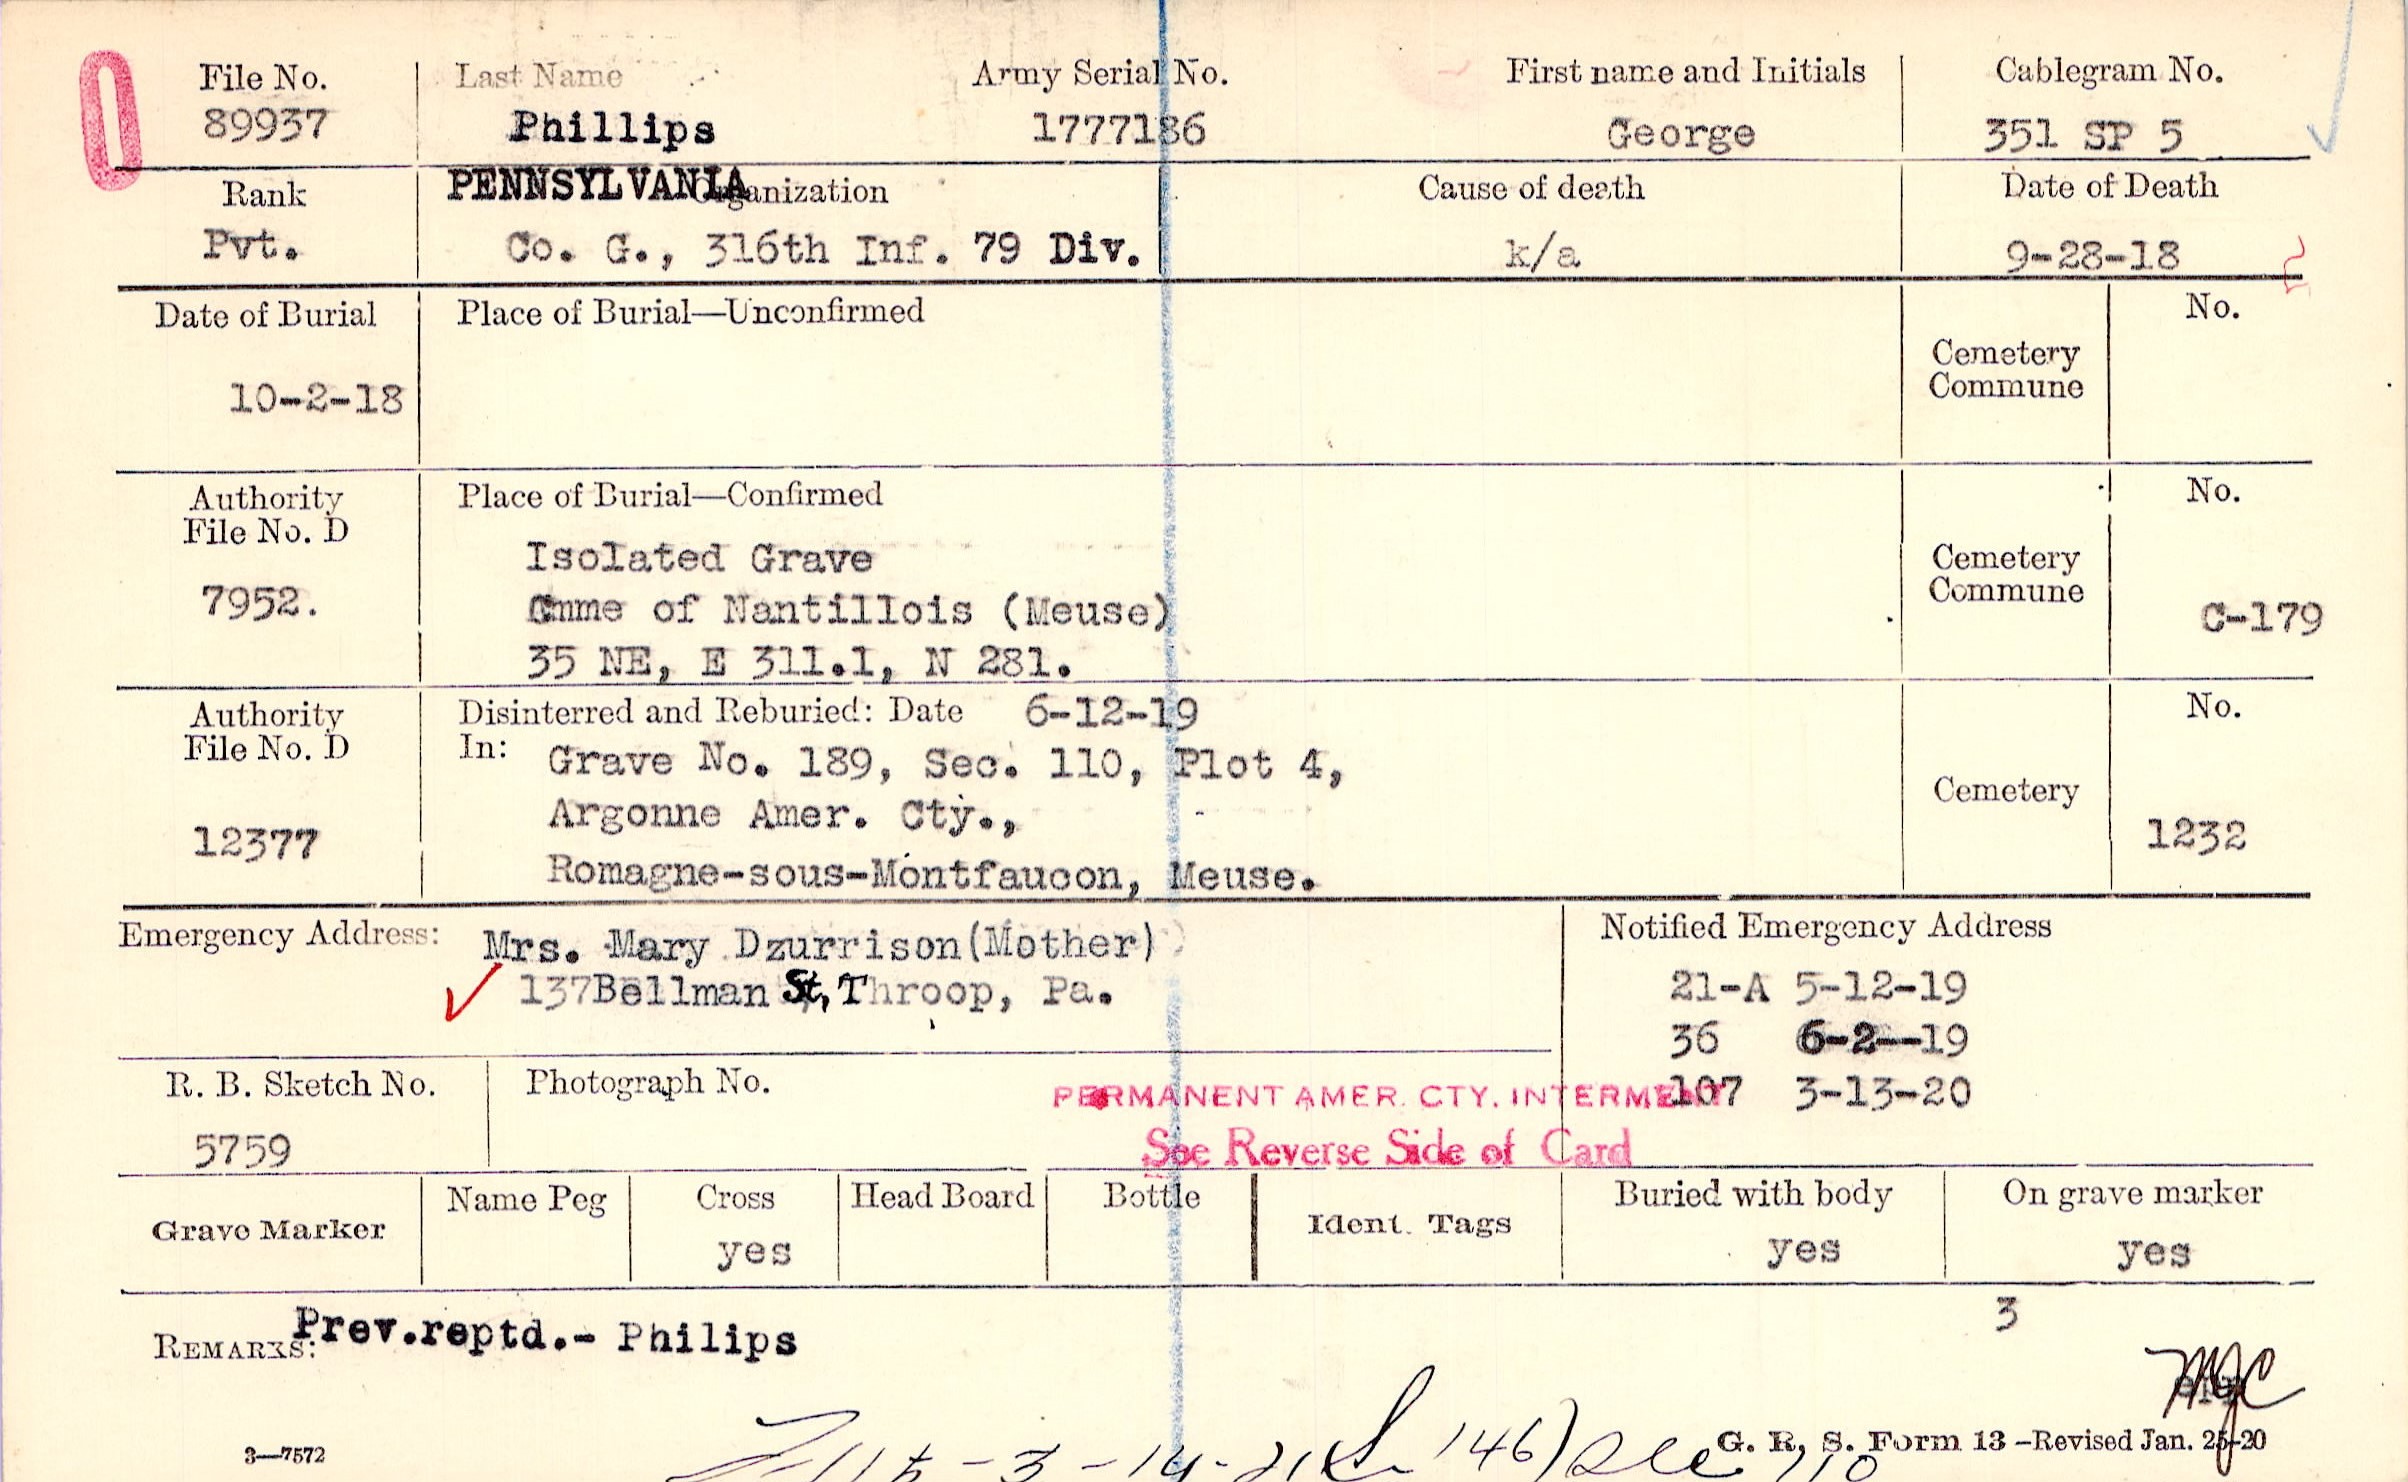 File No. Last Name Army Serial No. First name and Initials Cablegram No.
89937 Phillips 1777186 George 351 SP 5
Rank PENNSYLVANIA Organization Cause of death Date of Death
Pvt. Co. G., 316th Inf. 79 Div. k/a 9-28-18
Date of Burial Place of Burial—Unconfirmed No.
Cemetery
Commune
10-2-18
Authority Place of Burial—Confirmed No.
File No. D
Isolated Grave Cemetery
7952. Cmme of Nantillois (Meuse) Commune C-179
35 NE, E 311.1, N 281.
Authority Disinterred and Reburied: Date 6-12-19 No.
File No. D In: Grave No. 189, Sec. 110, Plot 4,
Argonne Amer. Cty., Cemetery
12377 Romagne-sous-Montfaucon, Meuse. 1232
Emergency Address: Mrs. Mary Dzurrison(Mother) Notified Emergency Address
137Bellman St, Throop, Pa. 21-A 5-12-19
36 6-2--19
R. B. Sketch No. Photograph No. PERMANENT AMER. CTY. INTERMENT 107 3-13-20
5759 See Reverse Side of Card
Grave Marker Name Peg Cross Head Board Bottle Ident. Tags Buried with body On grave marker
yes yes yes
3
REMARKS: Prev.reptd.- Philips
MJC
146) See 710
3—7572 G. R. S. Form 13 -Revised Jan. 25-20